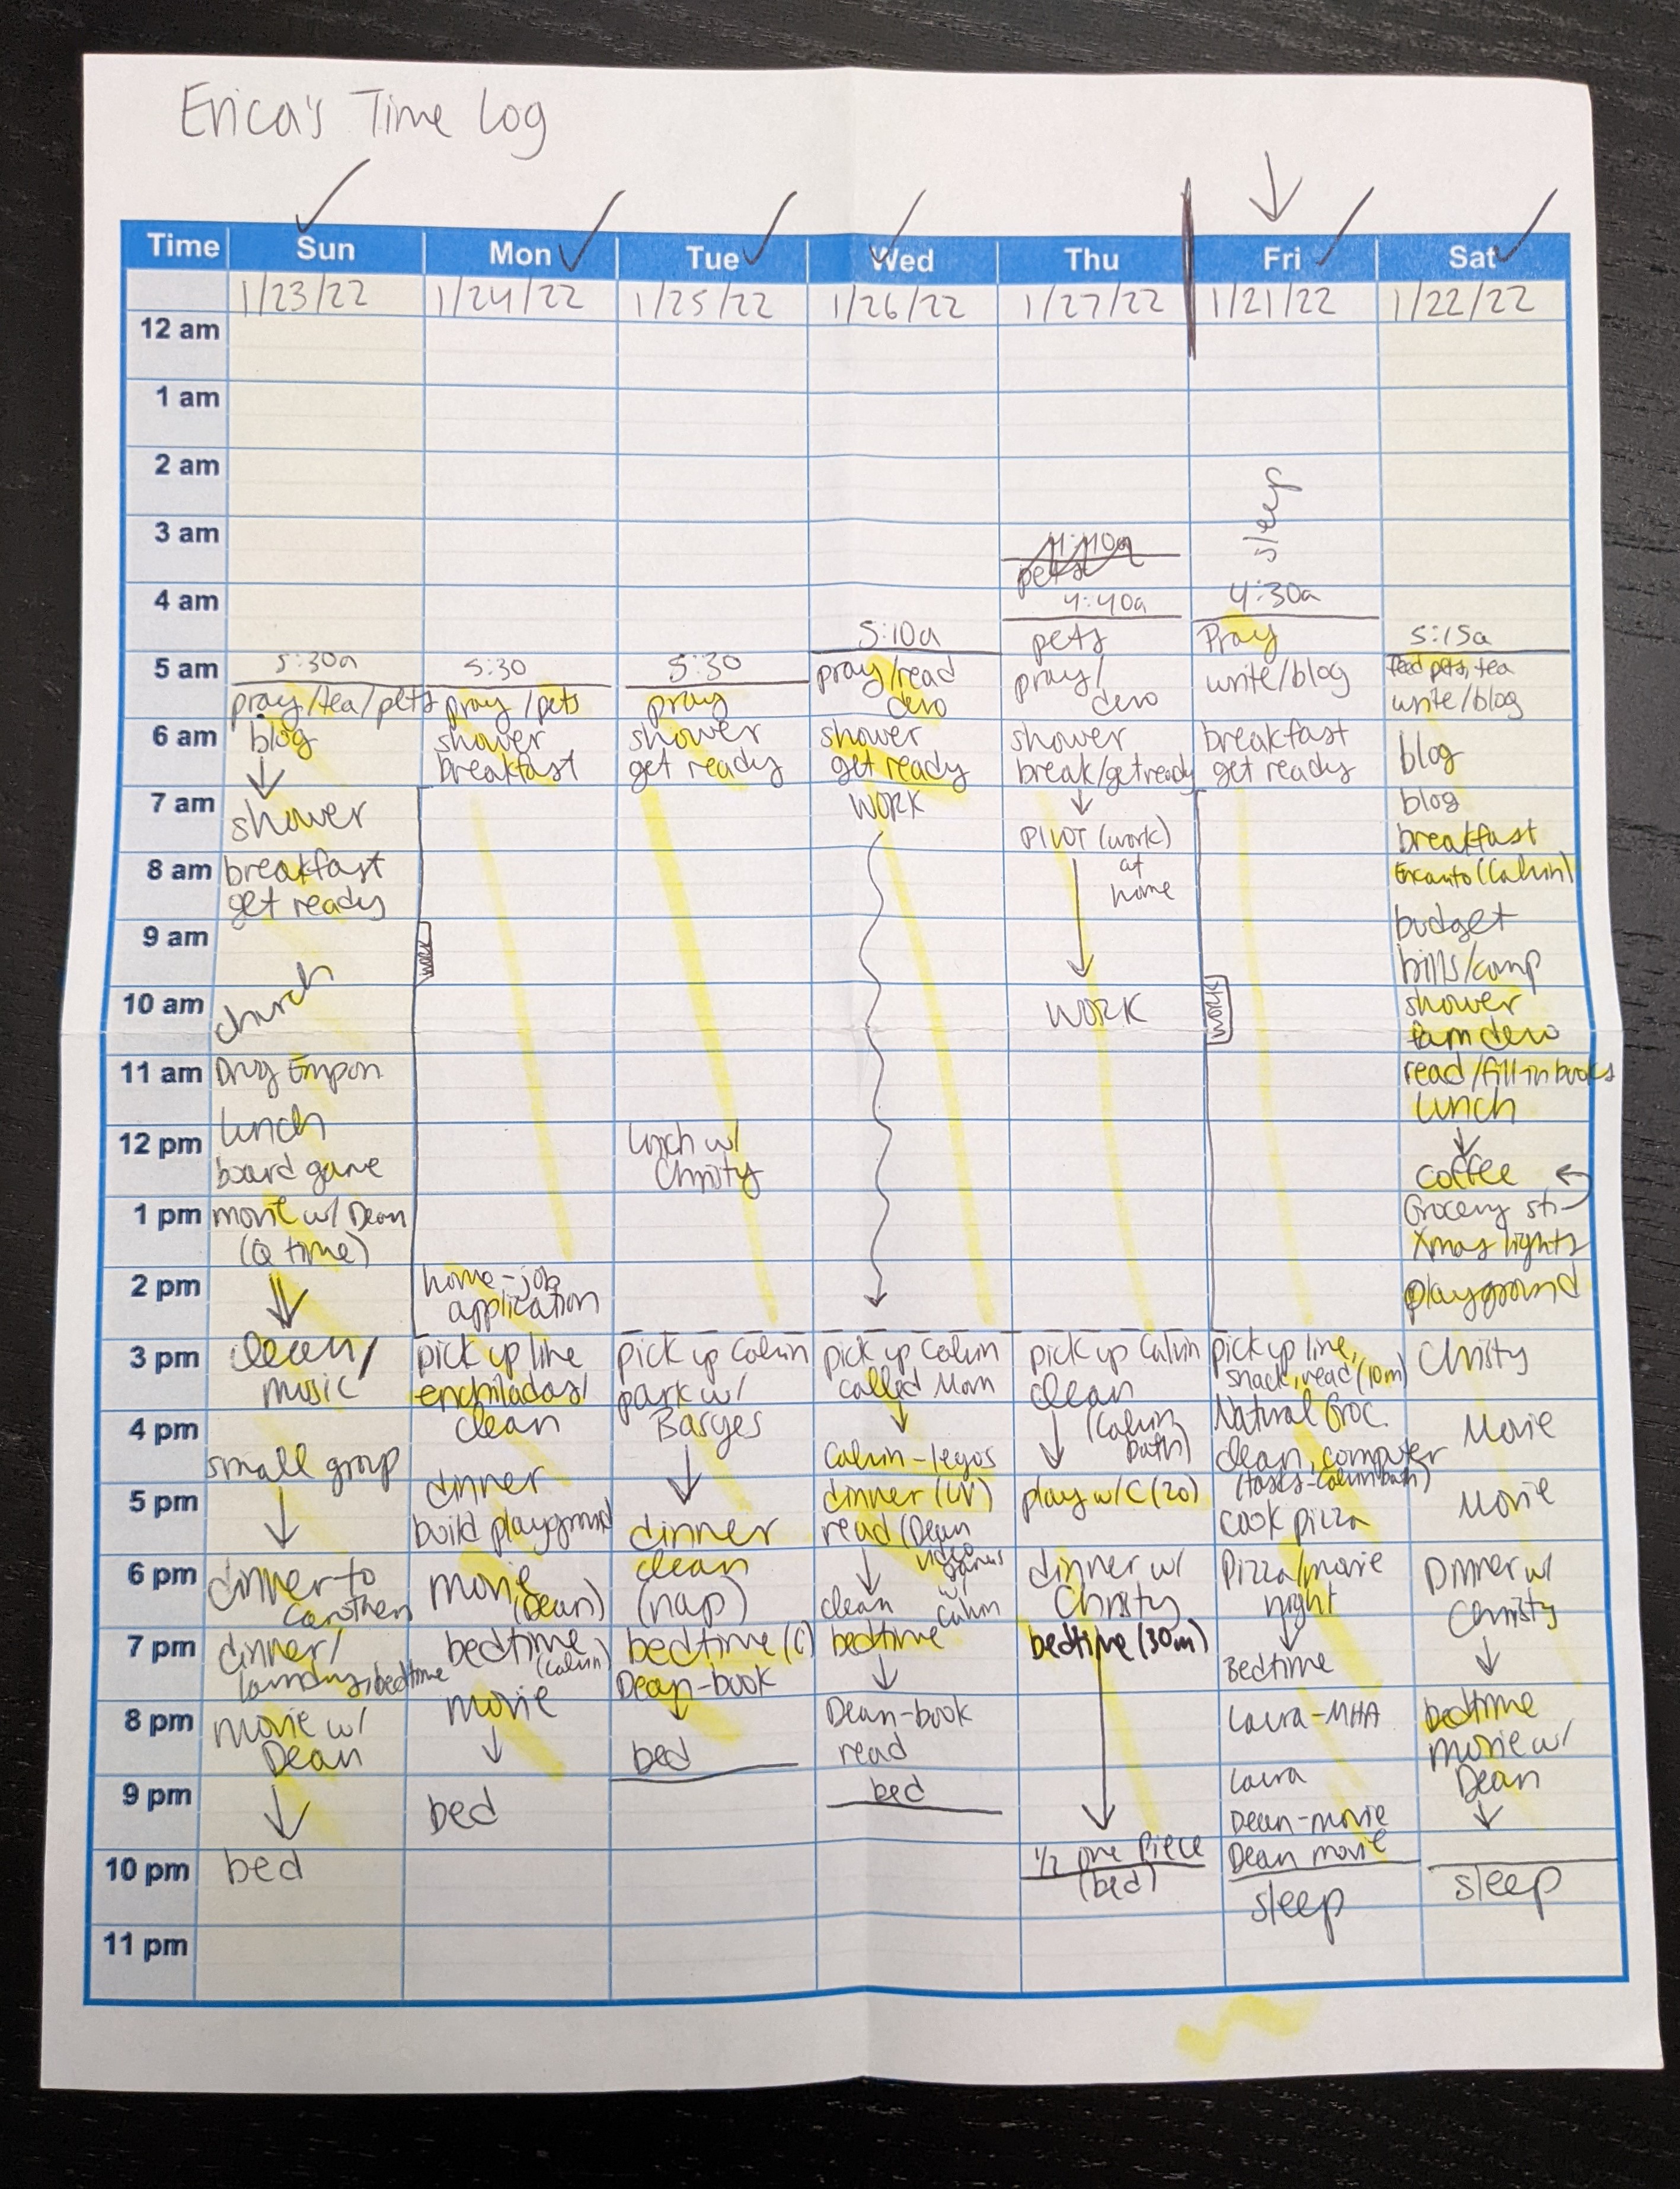 Erica's Time Log
Time Sun Mon Tue Wed Thu Fri Sat
1/23/22 1/24/22 1/25/22 1/26/22 1/27/22 1/21/22 1/22/22
12 am
1 am
2 am
sleep
3 am
pets
4 am
4:40a 4:30a
5:10a pets Pray 5:15a
5 am 5:30a 5:30 5:30 pray/read pray/ write/blog feed pets, tea
pray/tea/pets pray/pets pray devo devo write/blog
6 am blog shower shower shower shower breakfast blog
breakfast get ready get ready break/get ready get ready
7 am shower WORK PIVOT (work) blog
breakfast
8 am breakfast at Encanto (Calvin)
get ready home budget
9 am work bills/comp
10 am church WORK work shower
fam devo
11 am Drug Empor read/fill in books
lunch lunch
12 pm board game lunch w/ coffee
Christy
1 pm movie w/ Dean Grocery st-
(Q time) Xmas lights
2 pm home-job playground
application
3 pm clean/ pick up line pick up Calvin pick up Calvin pick up Calvin pick up line, Christy
music enchiladas/ park w/ called Mom clean snack, read (10m)
4 pm clean Barges (Calvin bath) Natural Groc. Movie
small group dinner Calvin-legos clean, computer
5 pm build playground dinner dinner play w/ C (20) (taxes-Calvin bath) Movie
read (Dean cook pizza
6 pm dinner to movie clean video games dinner w/ Pizza/movie Dinner w/
Carothers (Dean) (nap) clean w/ Calvin Christy night Christy
7 pm dinner/ bedtime bedtime (C) bedtime bedtime (30m) Bedtime
laundry, bedtime (Calvin) Dean-book
8 pm movie w/ movie Dean-book Laura-MHA bedtime
Dean bed read movie w/
9 pm bed bed Laura Dean
Dean-movie
10 pm bed 1/2 One Piece Dean movie sleep
(bed) sleep
11 pm